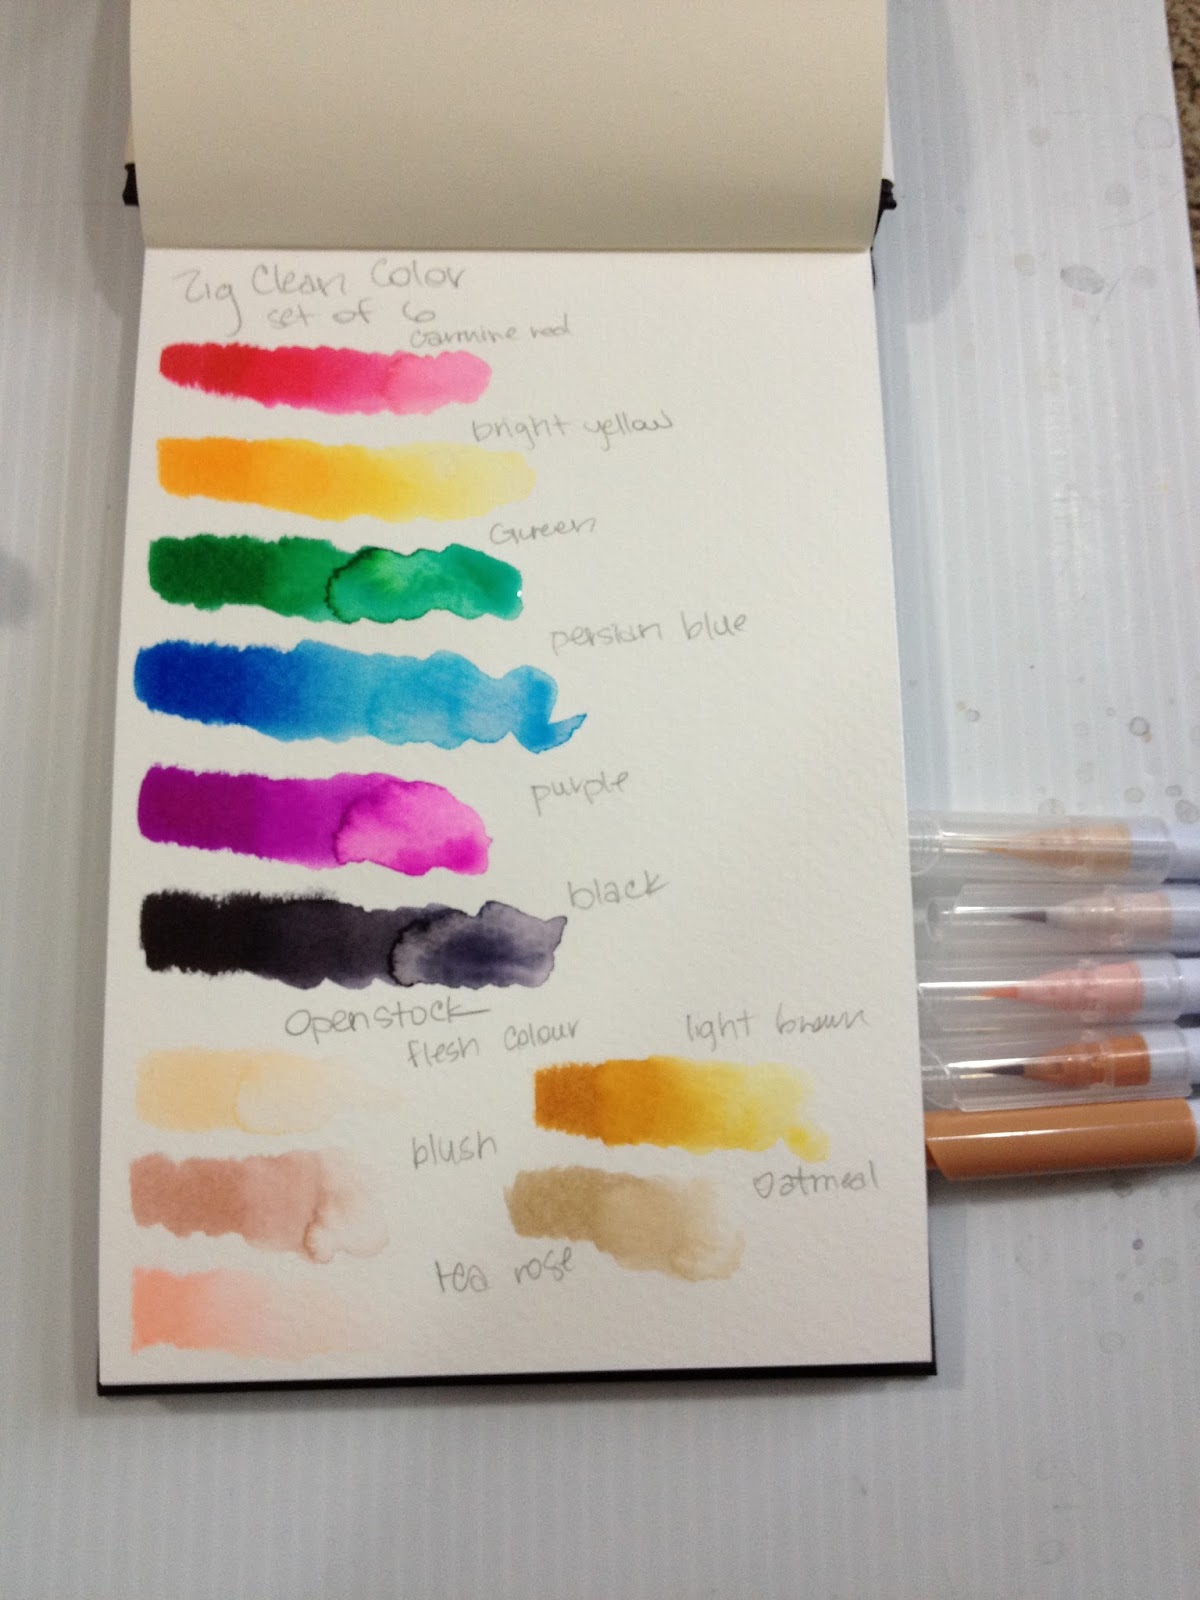 Zig Clean Color
set of 6
Carmine red
bright yellow
Green
persian blue
purple
black
Openstock
flesh colour
light brown
blush
Oatmeal
tea rose